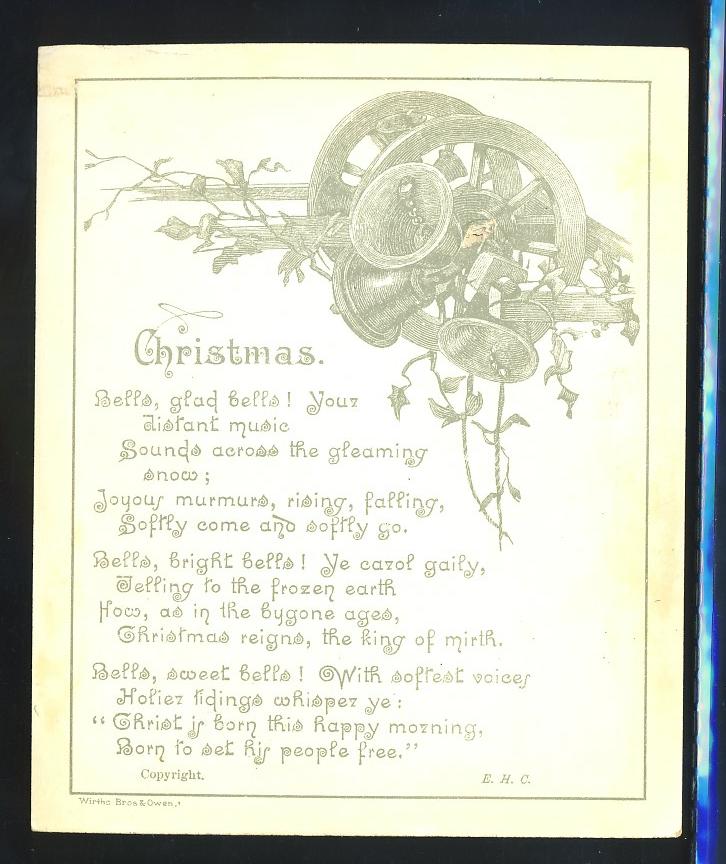 Christmas.
Bells, glad bells! Your
distant music
Sounds across the gleaming
snow;
Joyous murmurs, rising, falling,
Softly come and softly go.
Bells, bright bells! Ye carol gaily,
Telling to the frozen earth
How, as in the bygone ages,
Christmas reigns, the king of mirth.
Bells, sweet bells! With softest voices
Holier tidings whisper ye:
"Christ is born this happy morning,
Born to set his people free."
Copyright.
E. H. C.
Wirths Bros & Owen.